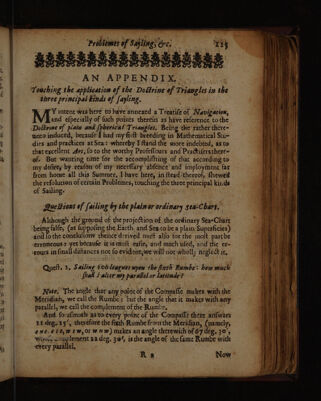 Problemes of Sayling, &c. 225
AN APPENDIX.
Touching the application of the Doctrine of Triangles in the
three principal kinds of sayling.
MY intent was here to have annexed a Treatise of Navigation,
and especially of such points therein as have reference to the
Doctrine of plain and spherical Triangles. Being the rather there-
unto induced, because I had my first breeding in Mathematical Stu-
dies and practices at Sea: whereby I stand the more indebted, as to
that excellent Art, so to the worthy Professours and Practisers there-
of. But wanting time for the accomplishing of that according to
my desire, by reason of my necessary absence and imployment far
from home all this Summer, I have here, in stead thereof, shewed
the resolution of certain Problemes, touching the three principal kinds
of Sailing.
Questions of sailing by the plain or ordinary sea-Chart.
Although the ground of the projection of the ordinary Sea-Chart
being false, (as supposing the Earth and Sea to be a plain Superficies)
and so the conclusions thence derived must also for the most part be
erroneous: yet because it is most easie, and much used, and the er-
rours in small distances not so evident, we will not wholly neglect it.
Quest. 1. Sailing 100 leagues upon the sixth Rumbe: how much
shall I alter my parallel or latitude?
Note. The angle that any point of the Compasse makes with the
Meridian, we call the Rumbe: but the angle that it makes with any
parallel, we call the complement of the Rumbe.
And forasmuch as to every point of the Compasse there answers
11 deg. 15', therefore the sixth Rumbe from the Meridian, (namely,
ene, ese, wsw, or wnw) makes an angle therewith of 67 deg. 30',
whose complement 22 deg. 30', is the angle of the same Rumbe with
every parallel.
R 2 Now